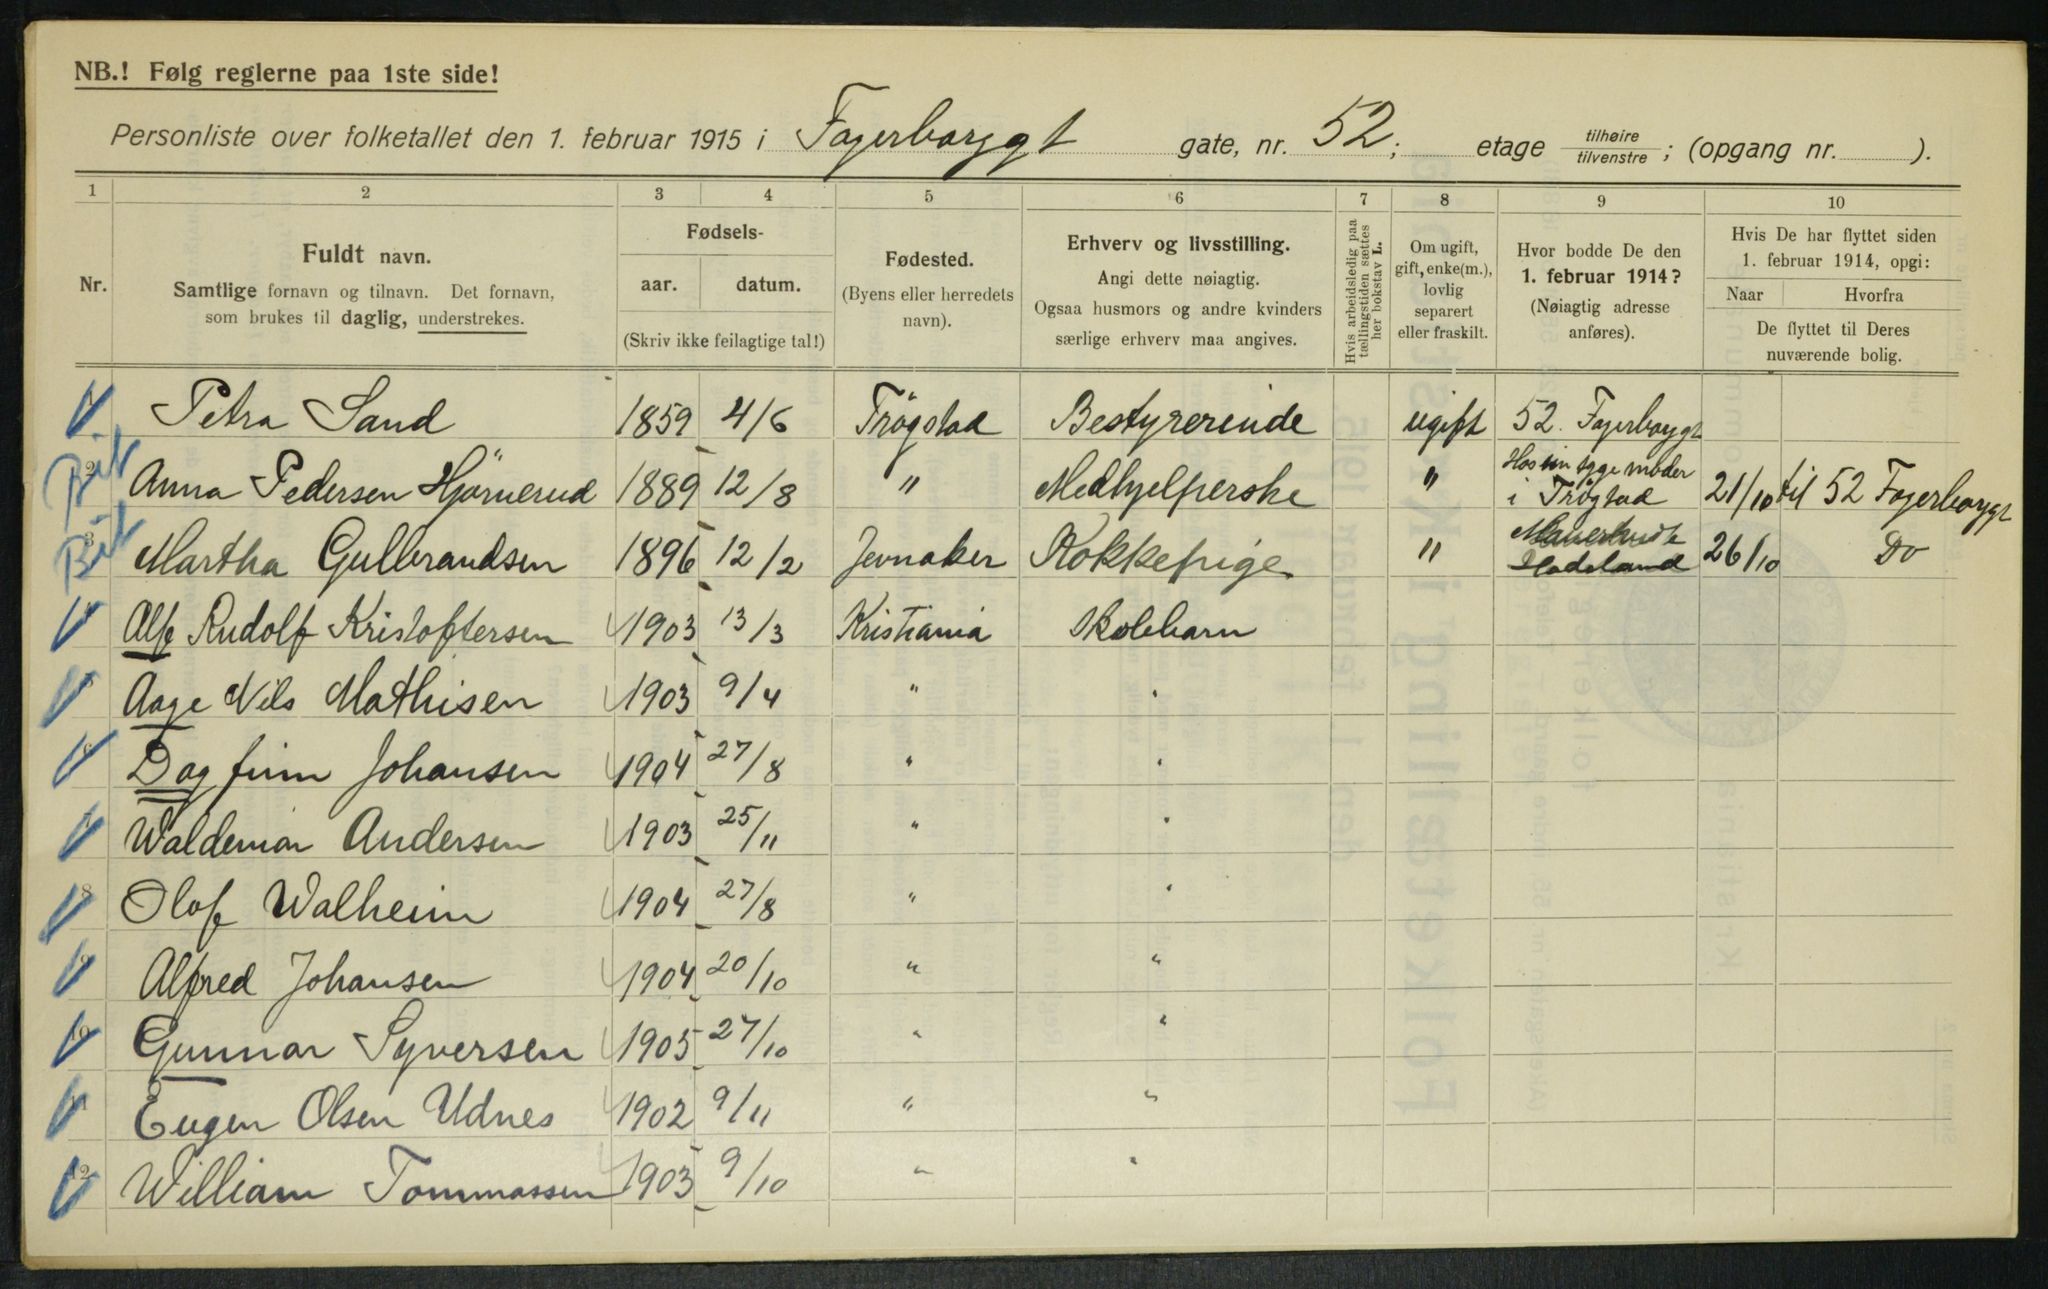 NB.! Følg reglerne paa 1ste side!
Personliste over folketallet den 1. februar 1915 i Fagerborggt gate, nr. 52; etage tilhøire / tilvenstre; (opgang nr. ).
1 2 3 4 5 6 7 8 9 10
Nr.
Fuldt navn.
Samtlige fornavn og tilnavn. Det fornavn,
som brukes til daglig, understrekes.
Fødsels-
aar. datum.
(Skriv ikke feilagtige tal!)
Fødested.
(Byens eller herredets
navn).
Erhverv og livsstilling.
Angi dette nøiagtig.
Ogsaa husmors og andre kvinders
særlige erhverv maa angives.
Hvis arbeidsledig paa
tællingstiden sættes
her bokstav L.
Om ugift,
gift, enke(m.),
lovlig
separert
eller fraskilt.
Hvor bodde De den
1. februar 1914?
(Nøiagtig adresse
anføres).
Hvis De har flyttet siden
1. februar 1914, opgi:
Naar Hvorfra
De flyttet til Deres
nuværende bolig.
1 Petra Sand 1859 4/6 Trögstad Bestyrerinde ugift 52 Fagerborggt
2 Anna Pedersen Hjörnerud 1889 12/8 " Medhjelperske " Hos sin syge moder i Trögstad 21/10 til 52 Fagerborggt
3 Martha Gulbrandsen 1896 12/2 Jevnaker Kokkepige " Hadeland 26/10 Do
4 Alf Rudolf Kristoffersen 1903 13/3 Kristiania Skolebarn
5 Aage Nils Mathisen 1903 9/4 " "
6 Dagfinn Johansen 1904 27/8 " "
7 Waldemar Andersen 1903 25/11 " "
8 Olaf Walheim 1904 27/8 " "
9 Alfred Johansen 1904 20/10 " "
10 Gunnar Syversen 1905 27/10 " "
11 Eugen Olsen Udnes 1902 9/11 " "
12 William Tommassen 1903 9/10 " "